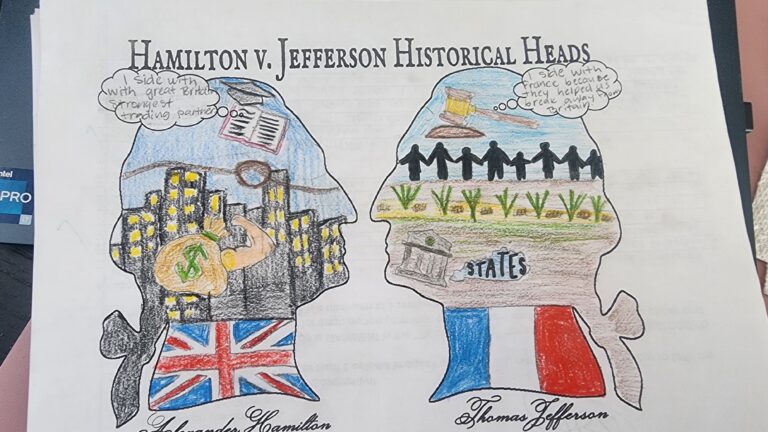 HAMILTON V. JEFFERSON HISTORICAL HEADS
I side with
with great Britain
strongest
trading partner
I side with
France because
they helped us
break away from
Britain
$
STATES
intel
PRO
Alexander Hamilton
Thomas Jefferson